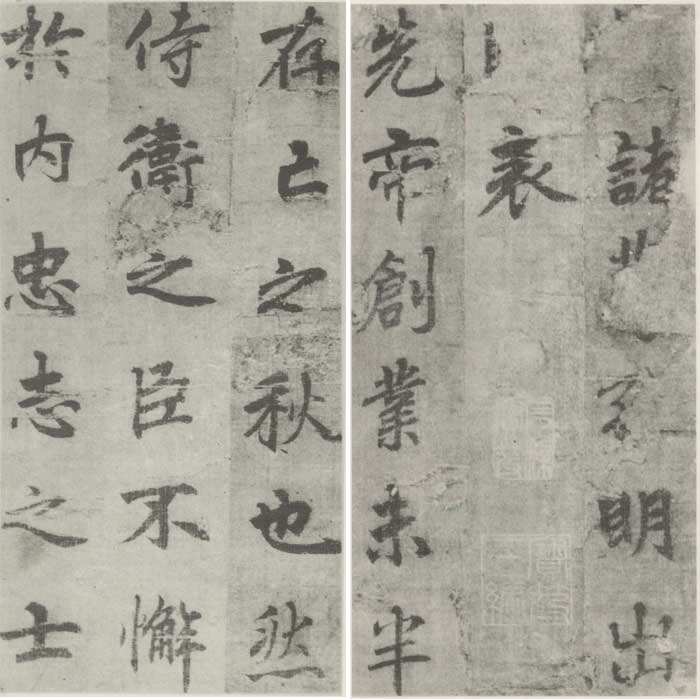 諸明出
表
先帝創業未半
存亡之秋也然
侍衛之臣不懈
於内忠志之士